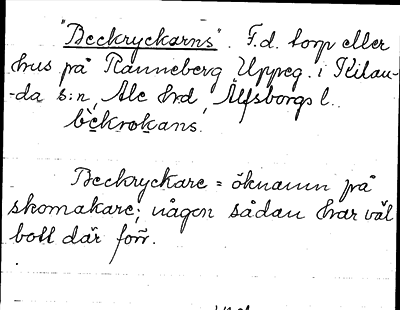 "Beckryckarns". F.d. torp eller
hus på Ranneberg Uppeg. i Kilan-
-da s:n, Ale hrd, Älfsborgs l..
bèckrokans.
Beckryckare = öknamn på
skomakare; någon sådan har väl
bott där förr.